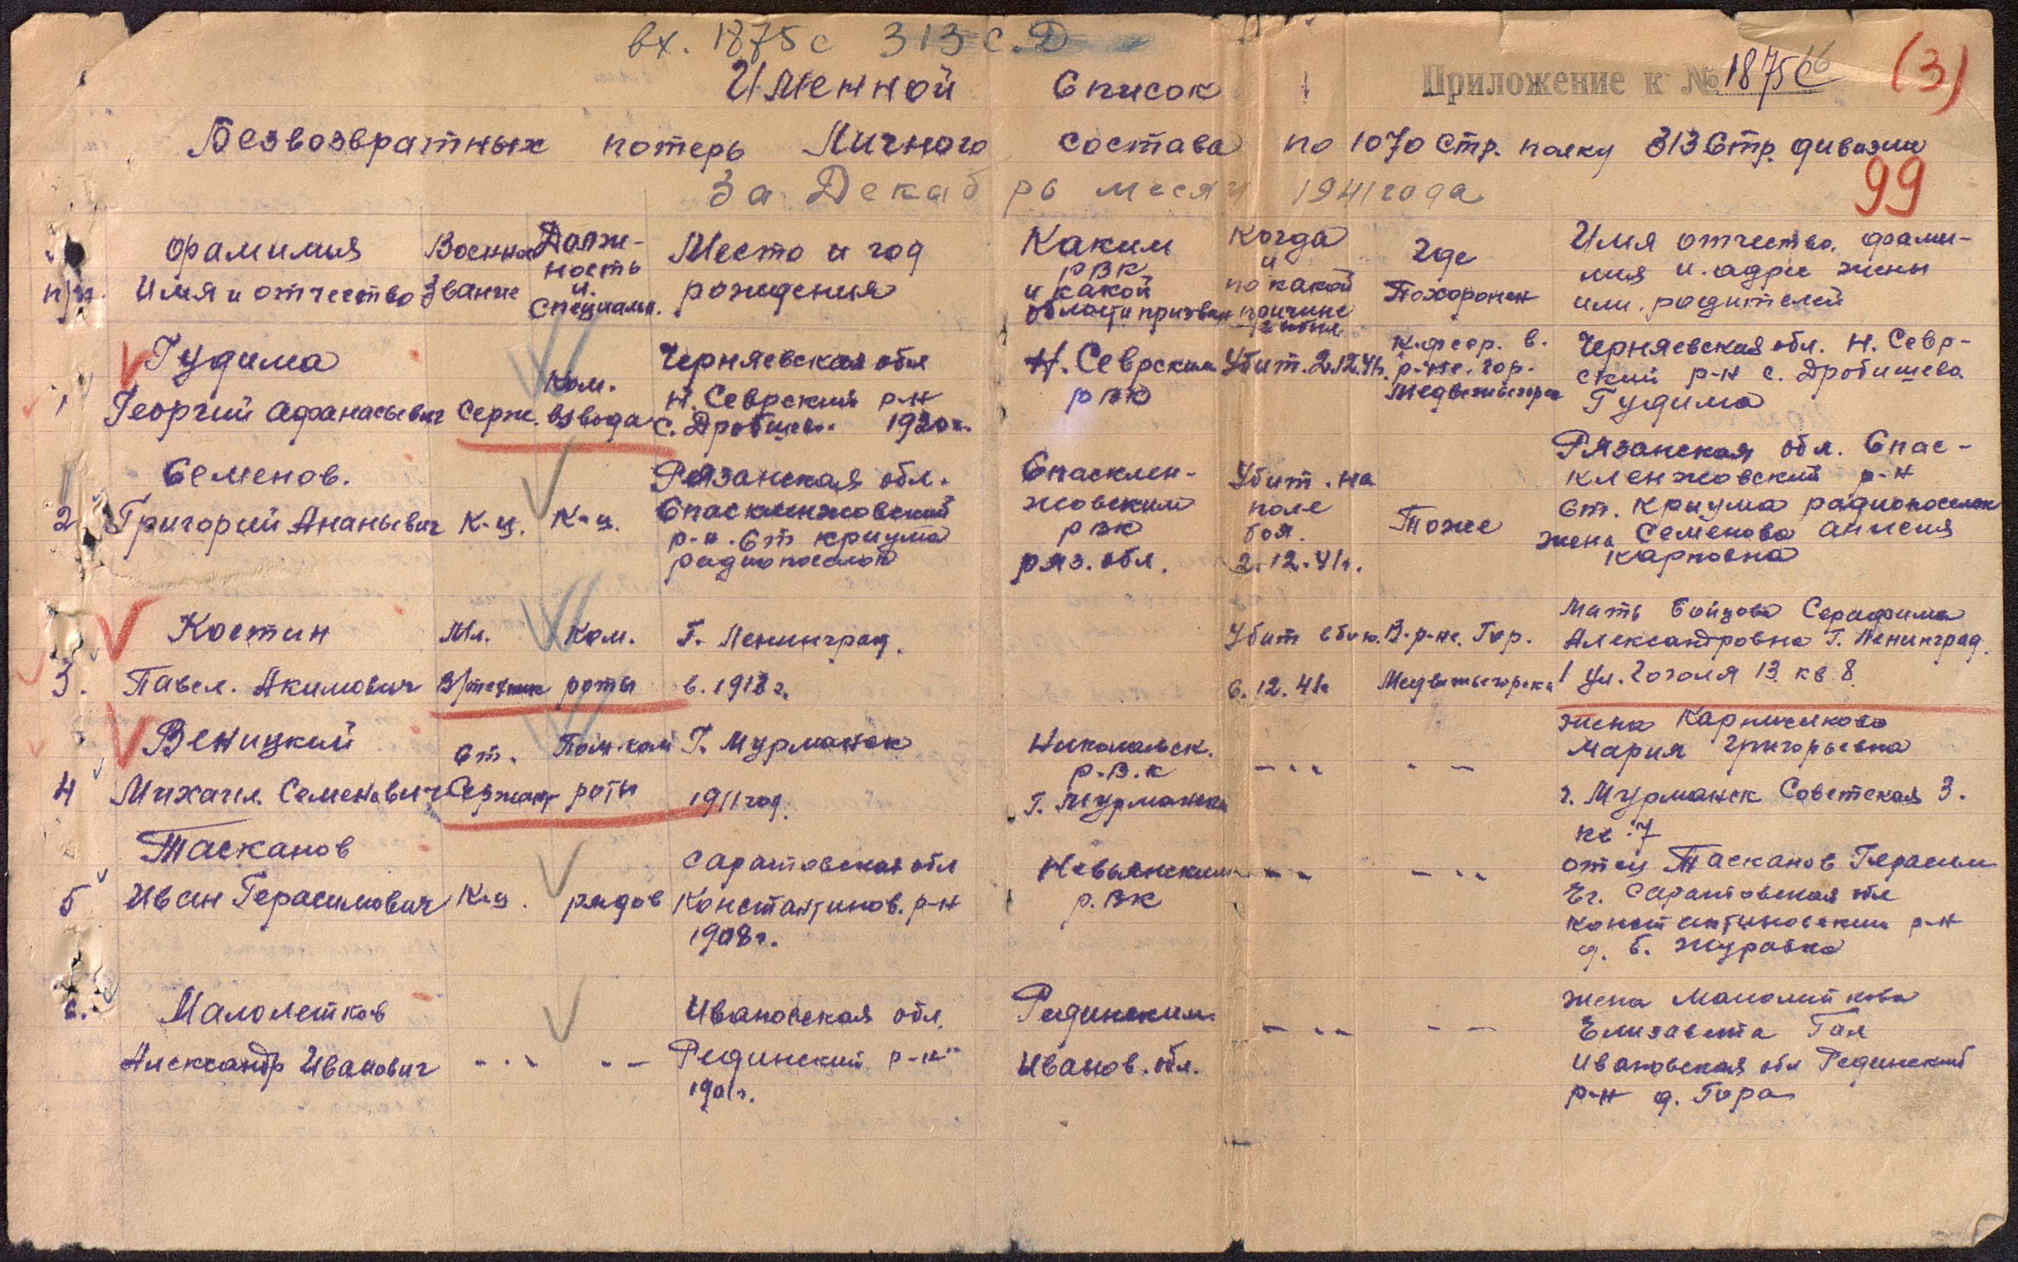 вх. 1875с 313 с.Д
Приложение к № 1875с
(3)
Именной Список
Безвозвратных потерь Личного состава по 1070 стр. полку 313 Стр. дивизии
За Декабрь месяц 1941 года
99
п/п. Фамилия Имя и отчество
Военное Звание
Должность и специальн.
Место и год рождения
Каким РВК и какой области призван
Когда и по какой причине
Где Похоронен
Имя отчество, фамилия и адрес жены или родителей
1
Гудима
Георгий Афанасьевич
Серж.
Ком. взвода
Черняевская обл
Н. Севрский р-н
с. Дробишево 1920 г.
Н. Северским
РВК
Убит. 2.12.41г.
К.фсср. в.
р-не. гор.
Медвежьегорск
Черняевская обл. Н. Севр-
ский р-н с. Дробишева
Гудима
2.
Семенов.
Григорий Ананьевич
К-ц.
К-ц.
Рязанская обл.
Спасклепжовский
р-н. ст криуша
радиопоселок
Спасклеп-
жовским
рвк
ряз. обл.
Убит. на
поле
боя.
2.12.41г.
Тоже
Рязанская обл. Спас-
клепжовский р-н
ст. Криуша радиопоселок
жена Семенова Анисия
Карповна
3.
Костин
Павел. Акимович
Мл.
В/техник
Ком.
роты
Г. Ленинград.
в. 1918 г.
Убит в бою.
6.12.41г
В. р-не. Гор.
Медвежьегорска
Мать Бойцова Серафима
Александровна Г. Ленинград.
ул. Гоголя 13 кв. 8
4
Веницкий
Михаил Семенович
Ст.
Сержант
Пом. ком
роты
Г. Мурманск
1911 год.
Р.В.К
Г. Мурманска
- " -
- " -
жена
Мария Григорьевна
г. Мурманск Советская 3.
кв. 7
5
Тасканов
Иван Герасимович
К-ц.
рядов
Саратовская обл
Константинов. р-н
1908 г.
Невьянским
Р.ВК
- " -
- " -
отец Тасканов Герасим
Ег. Саратовская обл
Константиновский р-н
д. Б. Журавка
6.
Малолетков
Александр Иванович
- " -
- " -
Ивановская обл.
Рединский р-н
1901г.
Рединским
Иванов. обл.
- " -
- " -
жена Малолиткова
Елизавета
Ивановская обл Рединский
р-н д. Гора